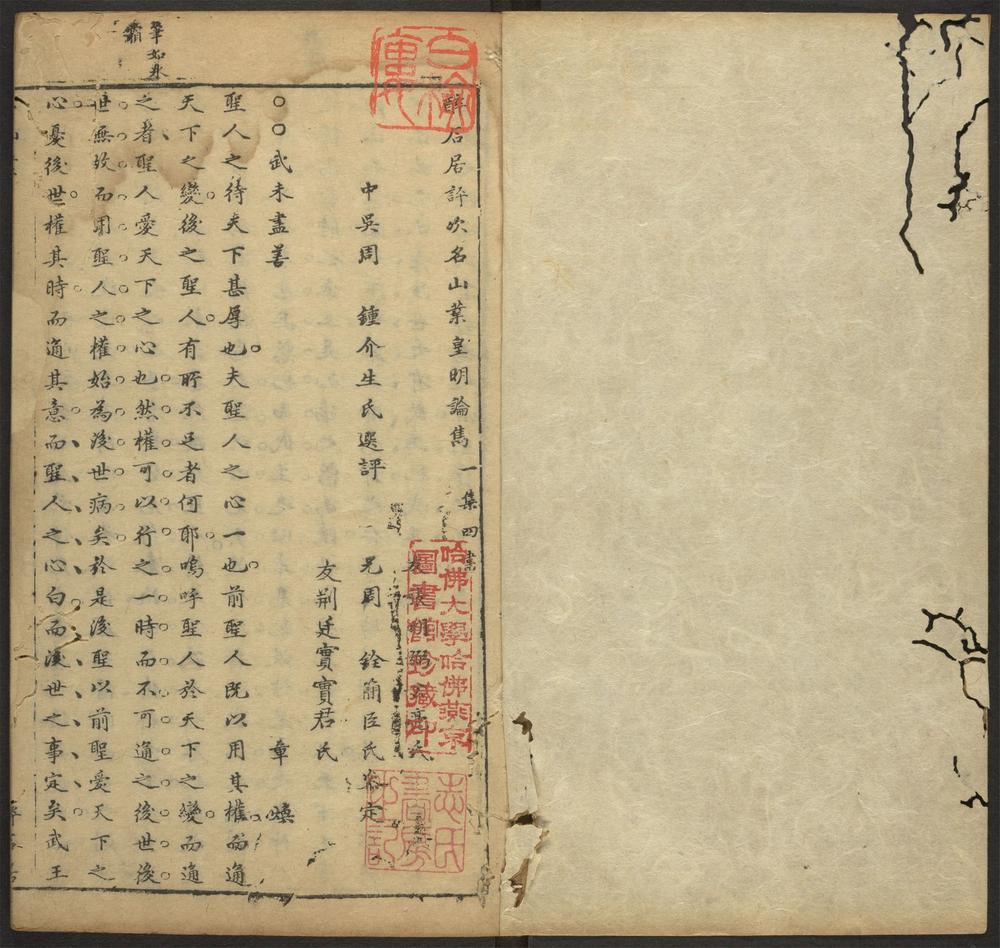 醉石居評次名山業皇明論雋一集四
中吳周 鍾介生氏選評
兄周 銓簡臣氏 定
友荆廷實實君氏
武未盡善 章 煥
聖人之待天下甚厚也夫聖人之心一也前聖人既以用其權而通
天下之變後之聖人有所不足者何耶嗚呼聖人於天下之變而通
之者聖人愛天下之心也然權可以行之一時而不可通之後世後
世無故而用聖人之權始為後世病矣於是後聖以前聖愛天下之
心憂後世權其時而通其意而聖人之心白而後世之事定矣武王
筆如永
霜
哈佛大學哈佛燕京
圖書館珍藏印